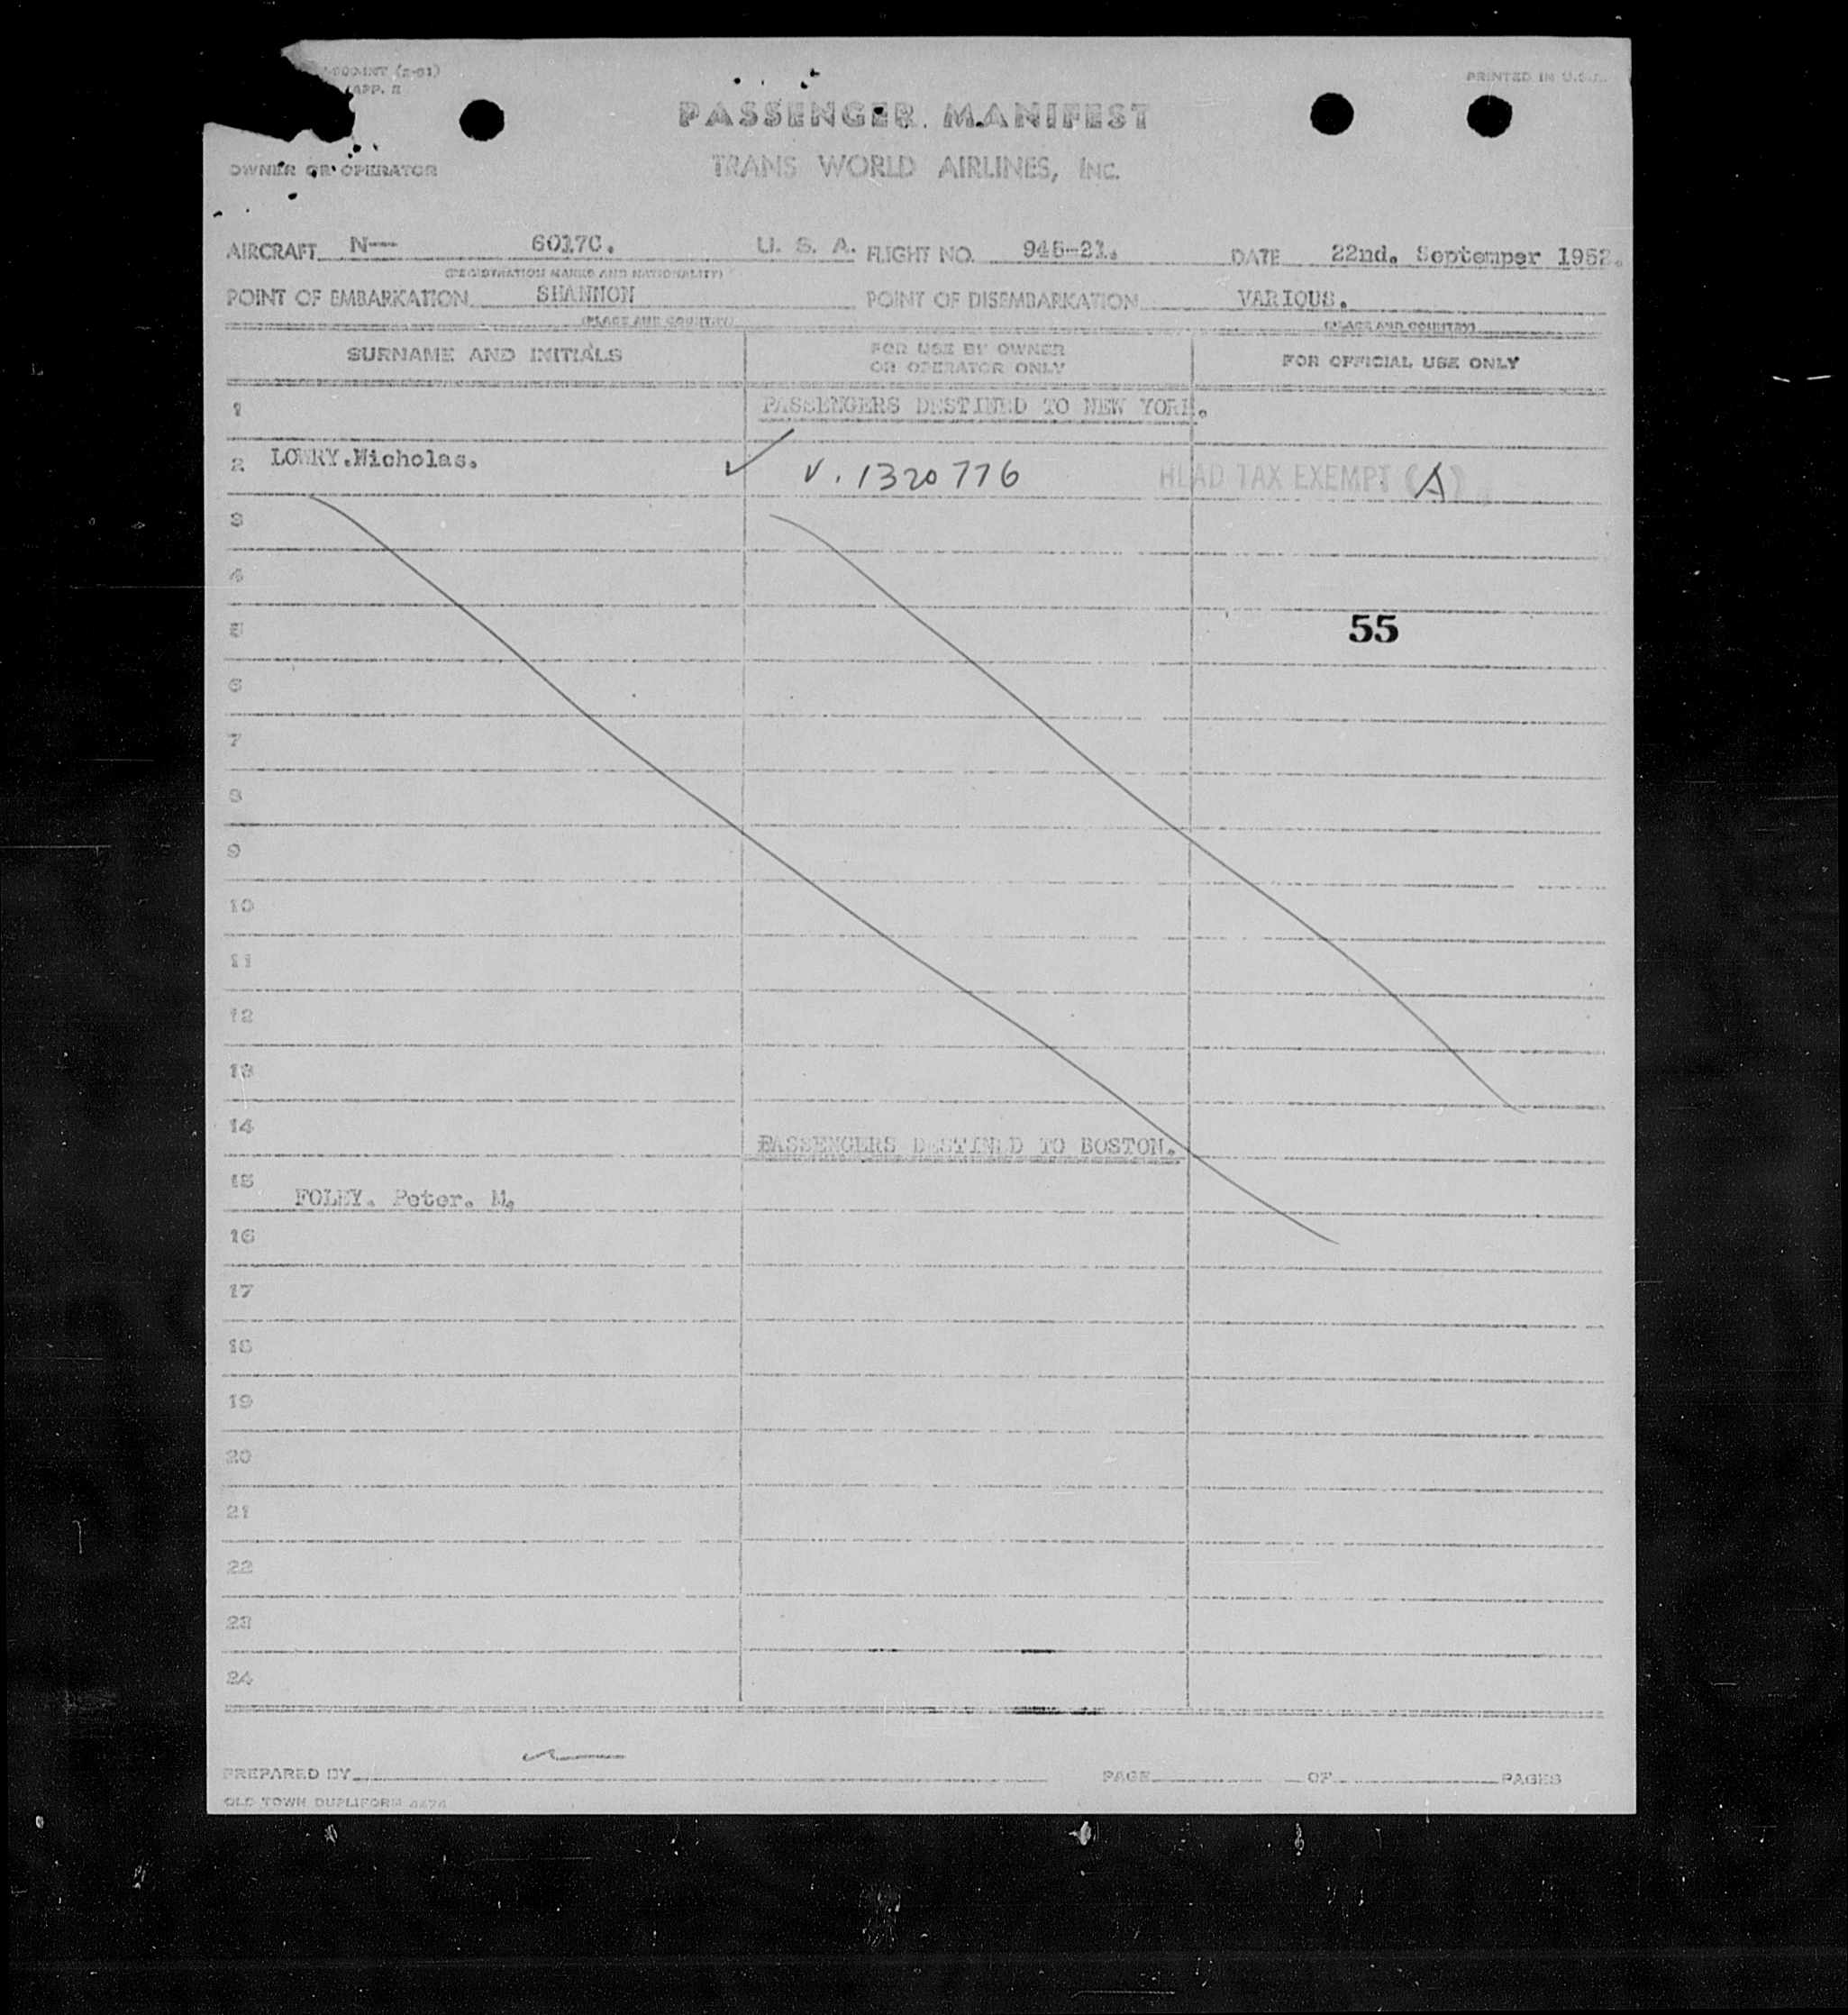 (2-51)
APP. 2
PRINTED IN U.S.A.
PASSENGER MANIFEST
OWNER OR OPERATOR
TRANS WORLD AIRLINES, INC.
AIRCRAFT N-- 6017C. U. S. A. FLIGHT NO. 945-21. DATE 22nd. September 1952.
(REGISTRATION MARKS AND NATIONALITY)
POINT OF EMBARKATION SHANNON POINT OF DISEMBARKATION VARIOUS.
(PLACE AND COUNTRY) (PLACE AND COUNTRY)
SURNAME AND INITIALS FOR USE BY OWNER OR OPERATOR ONLY FOR OFFICIAL USE ONLY
1 PASSENGERS DESTINED TO NEW YORK.
2 LOWRY.Nicholas. ✓ V. 1320776 HEAD TAX EXEMPT (A)
3
4
5 55
6
7
8
9
10
11
12
13
14 PASSENGERS DESTINED TO BOSTON.
15 FOLEY. Peter. M.
16
17
18
19
20
21
22
23
24
PREPARED BY PAGE OF PAGES
OLD TOWN DUPLIFORM